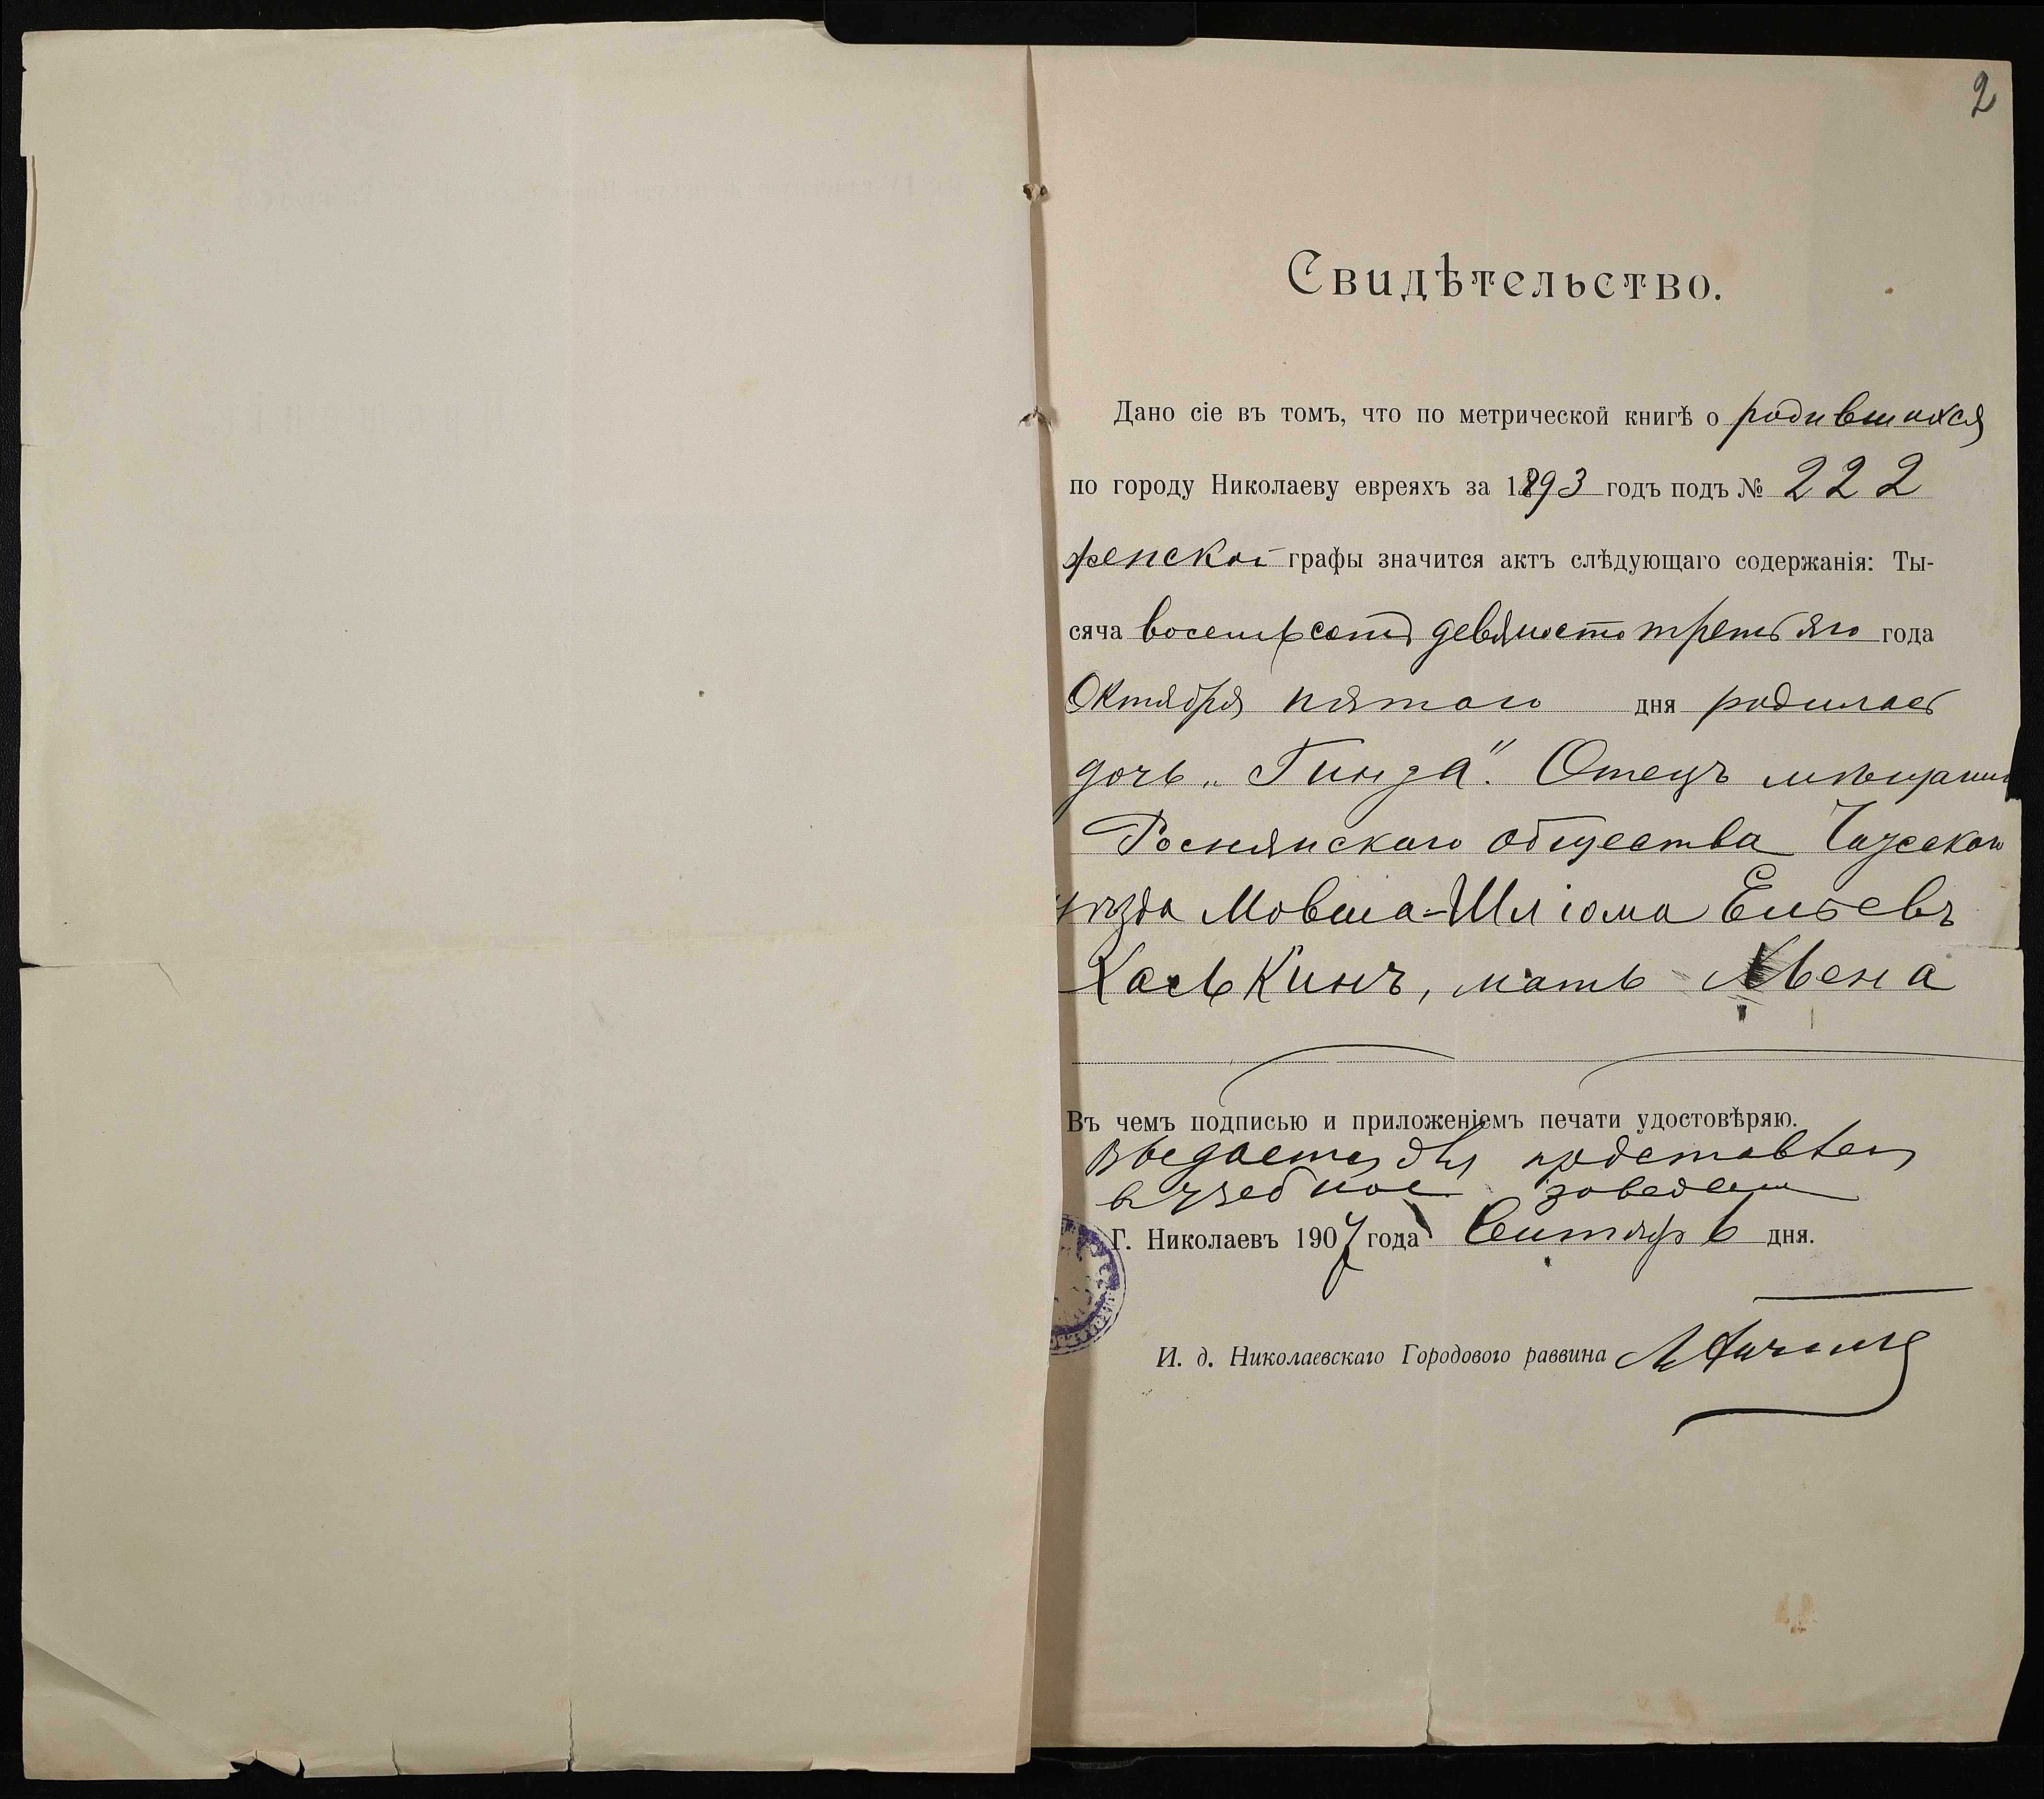 2
Свидѣтельство.
Дано сіе въ томъ, что по метрической книгѣ о родившихся
по городу Николаеву евреяхъ за 1893 годъ подъ № 222
женской графы значится актъ слѣдующаго содержанія: Ты-
сяча восемьсотъ девяносто третьяго года
Октября пятаго дня родилась
дочь „Гинда“. Отецъ мѣщанин
Роснянскаго общества Чаусскаго
уѣзда Мовша-Шліома Ельевъ
Хаськинъ, мать Хьена
Въ чемъ подписью и приложеніемъ печати удостовѣряю.
Выдается для представлен
в учебное заведен
Г. Николаевъ 1907 года Сентяр 6 дня.
И. д. Николаевскаго Городового раввина